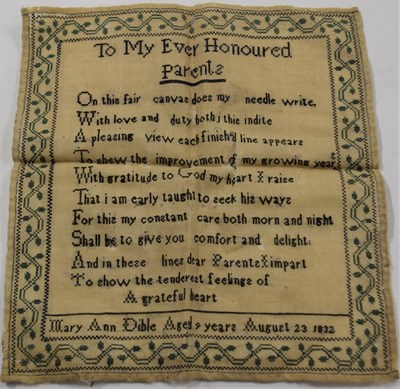 To My Ever Honoured
Parents
On this fair canvas does my needle write,
With love and duty both I this indite
A pleasing view each finish'd line appears
To shew the improvement of my growing years
With gratitude to God my heart I raise
That i am early taught to seek his ways
For this my constant care both morn and night
Shall be to give you comfort and delight:
And in these lines dear Parents I impart
To show the tenderest feelings of
A grateful heart
Mary Ann Dible Aged 9 years August 23 1832